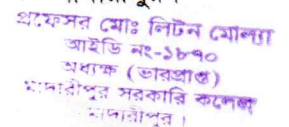 প্রফেসর মোঃ লিটন মোল্যা
আইডি নং-১৮৭০
অধ্যক্ষ (ভারপ্রাপ্ত)
মাদারীপুর সরকারি কলেজ
মাদারীপুর।